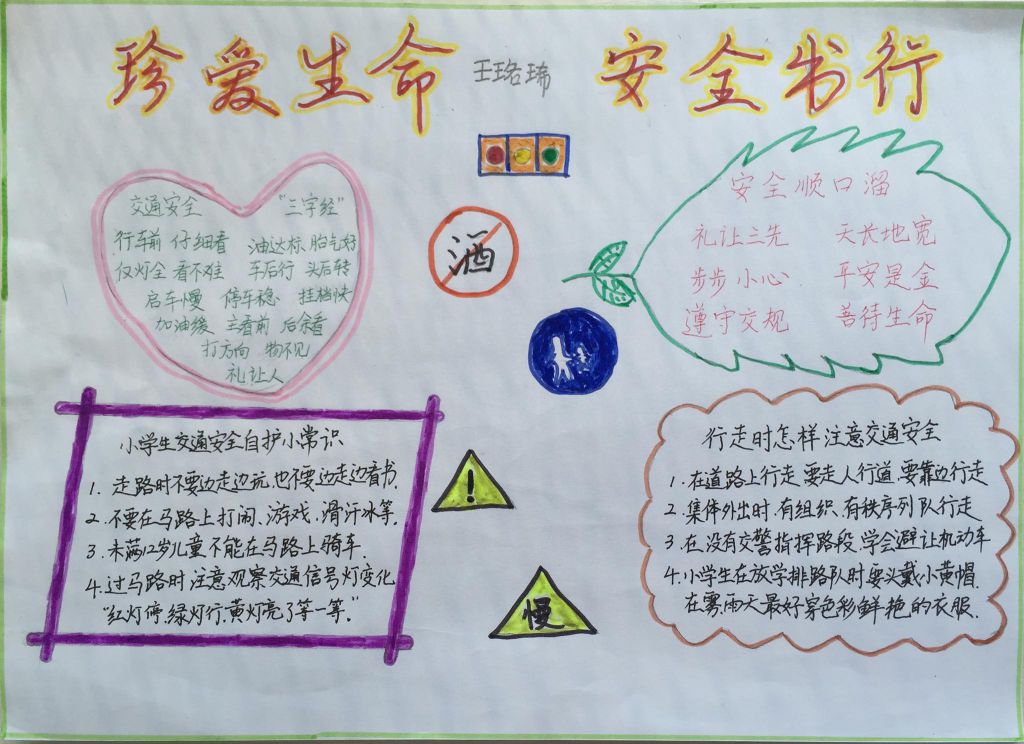 珍爱生命 王珞琋 安全书行
交通安全 “三字经”
行车前 仔细看 油达标 胎气好
仪灯全 看不难 车后行 头后转
启车慢 停车稳 挂档快
加油缓 主看前 后余看
打方向 物不见
礼让人
酒
安全顺口溜
礼让三先 天长地宽
步步小心 平安是金
遵守交规 善待生命
小学生交通安全自护小常识
1. 走路时不要边走边玩,也不要边走边看书.
2.不要在马路上打闹、游戏、滑汗冰等.
3.未满12岁儿童不能在马路上骑车.
4.过马路时注意观察交通信号灯变化
“红灯停,绿灯行,黄灯亮了等一等.”
!
慢
行走时怎样注意交通安全
1.在道路上行走,要走人行道,要靠边行走
2.集体外出时,有组织、有秩序列队行走
3.在没有交警指挥路段,学会避让机动车
4.小学生在放学排路队时要头戴小黄帽.
在雾雨天最好穿色彩鲜艳的衣服.